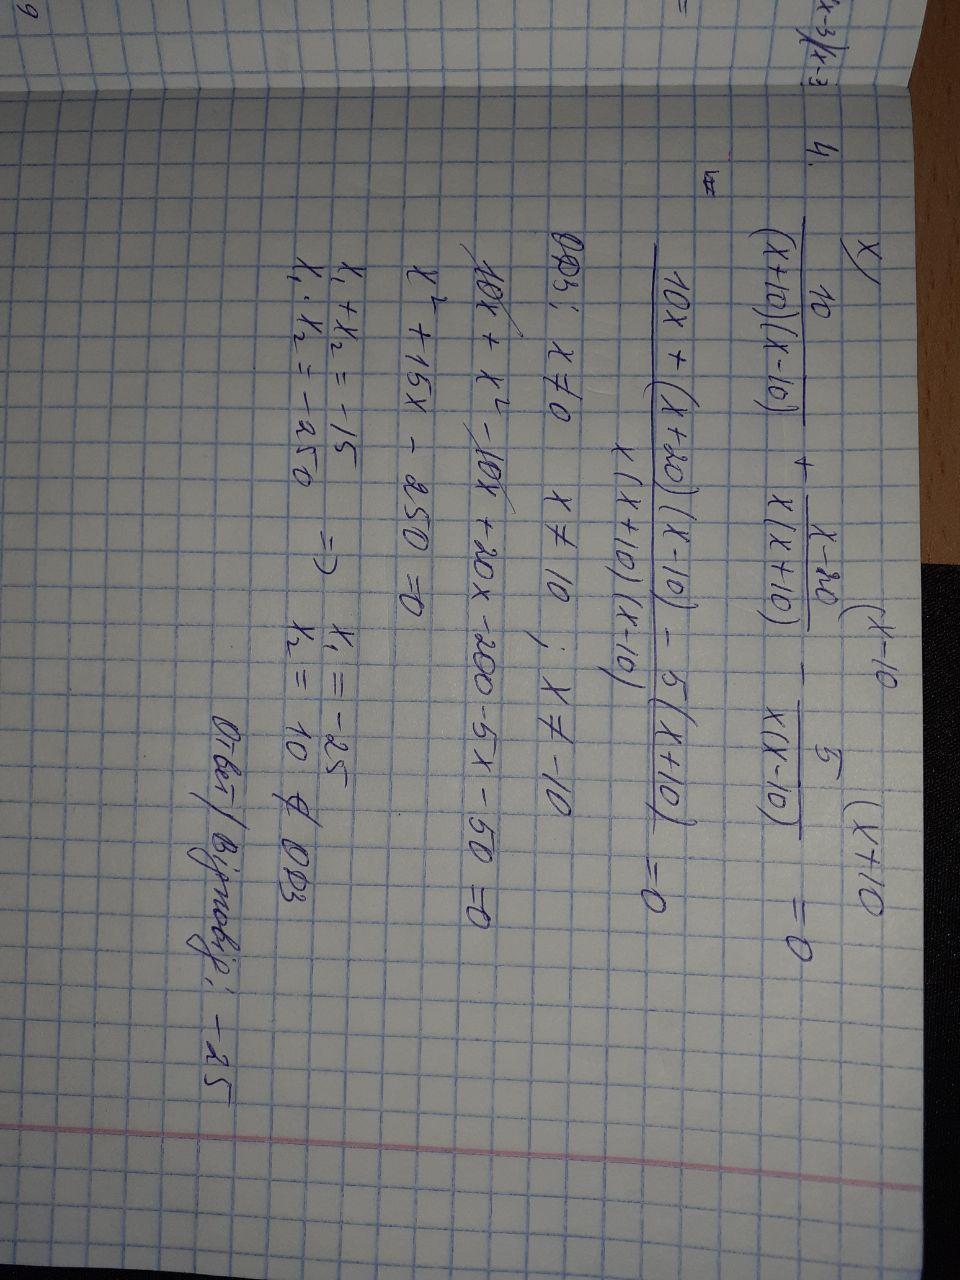 x-3)(x-3
=
9
4.
x) (x-10 (x+10
10/((x+10)(x-10)) + x-20/(x(x+10)) - 5/(x(x-10)) = 0
(10x + (x+20)(x-10) - 5(x+10))/(x(x+10)(x-10)) = 0
ОДЗ: x≠0 x≠10; x≠-10
10x + x² - 10x + 20x - 200 - 5x - 50 = 0
x² + 15x - 250 = 0
x₁ + x₂ = -15
x₁ · x₂ = -250 => x₁ = -25
x₂ = 10 ∉ ОДЗ
Ответ/Відповідь: -25